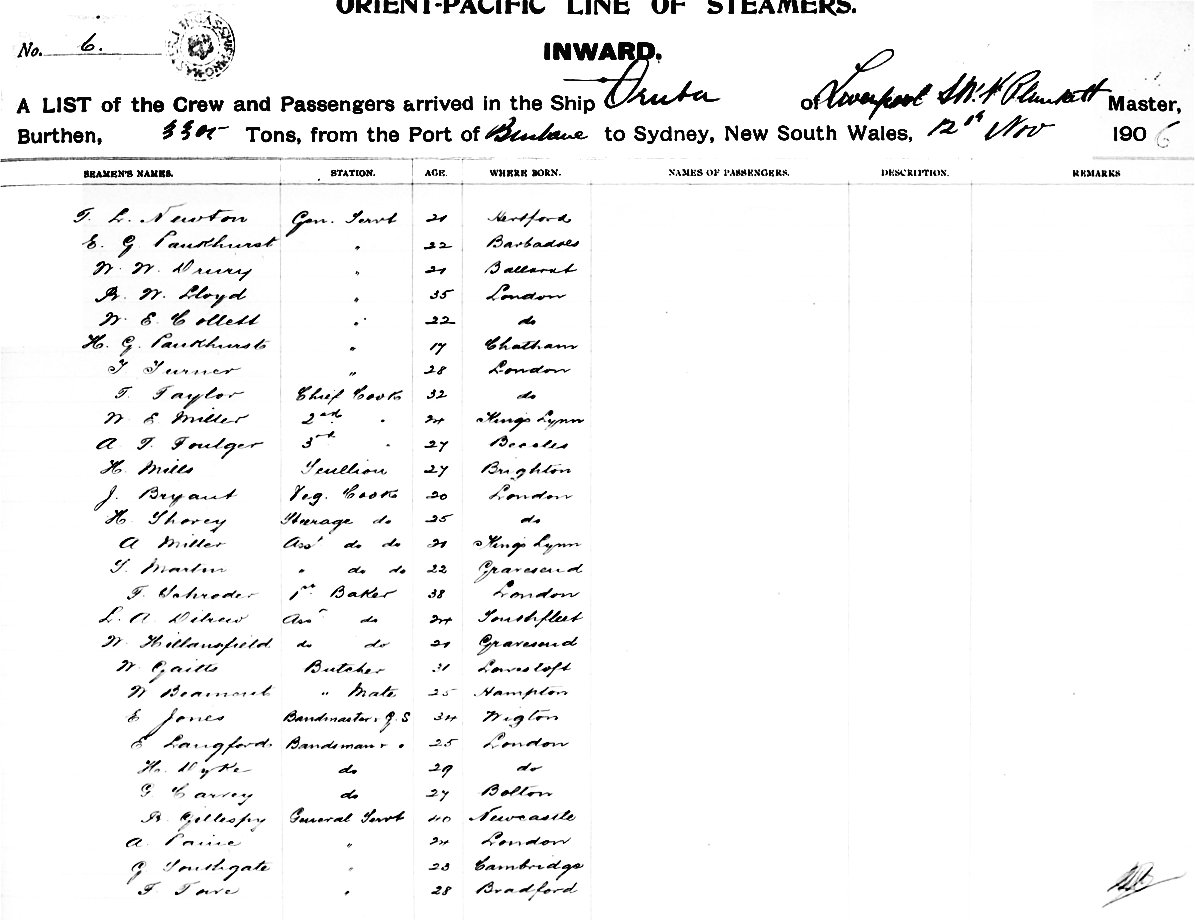 ORIENT-PACIFIC LINE OF STEAMERS.
No. 6.
INWARD.
A LIST of the Crew and Passengers arrived in the Ship Oruba of Liverpool Plunkett Master,
Burthen, Tons, from the Port of Brisbane to Sydney, New South Wales, 12th Nov 1906
SEAMEN'S NAMES. STATION. AGE. WHERE BORN. NAMES OF PASSENGERS. DESCRIPTION. REMARKS
T. L. Newton Gen. Servt 21 Hertford
E. G. Pankhurst " 22 Barbadoes
W. W. Drury " 21 Ballarat
R. W. Lloyd " 35 London
W. E. Collett " 22 do
H. G. Pankhurst " 17 Chatham
T Turner " 28 London
T. Taylor Chief Cook 32 do
W. E Miller 2nd " 24 Kings Lynn
A. T. Foulger 3rd " 27 Beccles
H. Mills Scullion 27 Brighton
J. Bryant Veg. Cook 20 London
H. Shorey Steerage do 25 do
A Miller Asst do do 21 Kings Lynn
S. Martin " do do 22 Gravesend
F. Schroder 1st Baker 38 London
L. A. Asst do 24 Southfleet
W. Hillansfield do do 21 Gravesend
W. Gaitts Butcher 31 Lowestoft
W Beamont " Mate 25 Hampton
E Jones Bandmaster & G. S 34 Wigton
E Langford Bandsman & " 25 London
H. Dyke do 29 do
G Carsey do 27 Bolton
R. Gillespy General Servt 40 Newcastle
A. Paine " 24 London
G Southgate " 23 Cambridge
F. " 28 Bradford